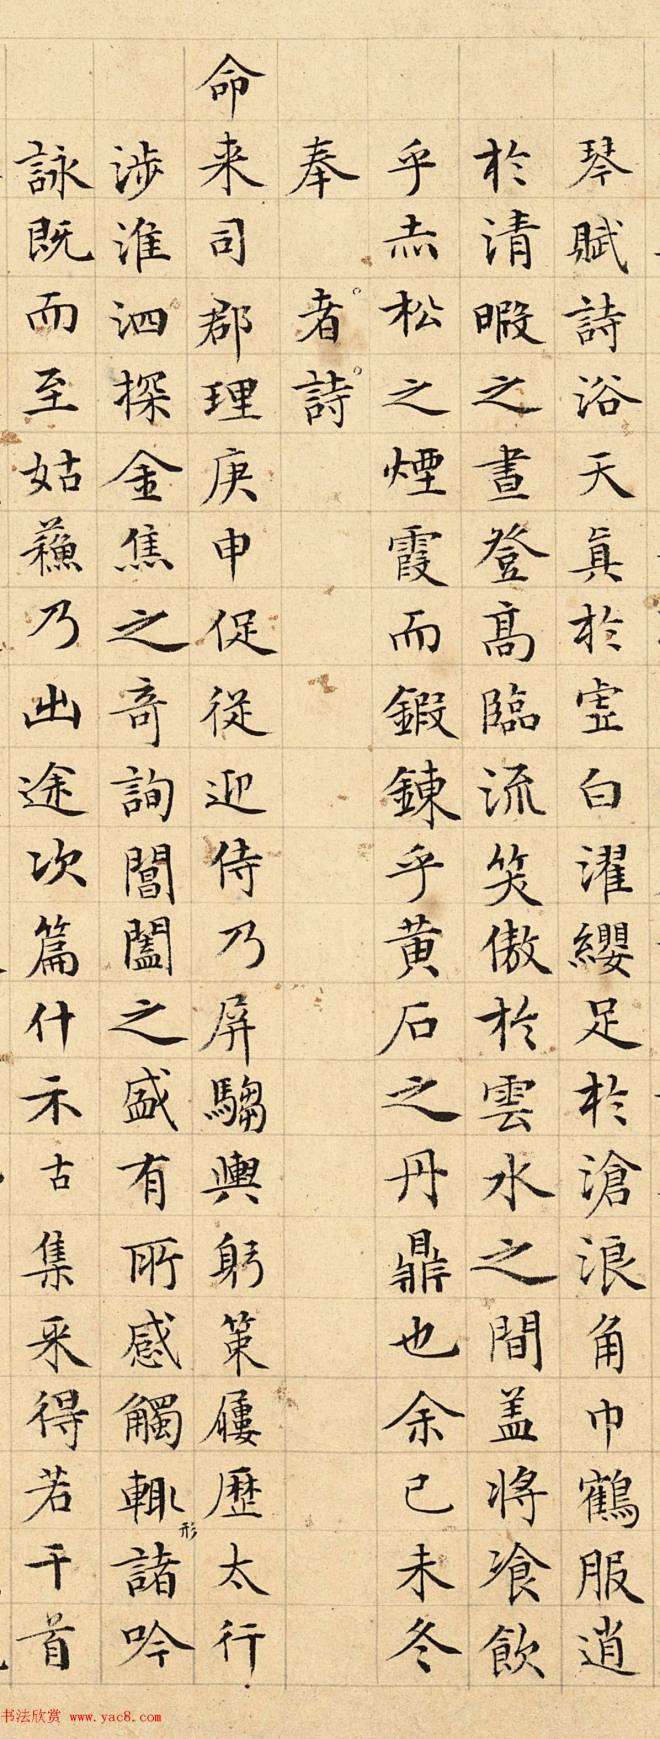 琴賦詩浴天真於虛白濯纓足於滄浪角巾鶴服逍
於清暇之晝登高臨流笑傲於雲水之間蓋將飡飲
乎赤松之煙霞而鍛鍊乎黃石之丹鼎也余己未冬
奉 者詩
命来司郡理庚申促従迎侍乃屏騶輿躬策屨歷太行
涉淮泗探金焦之奇詢閶闔之盛有所感觸輒形諸吟
詠既而至姑蘓乃出途次篇什示古集采得若干首
书法欣赏 www.yac8.com